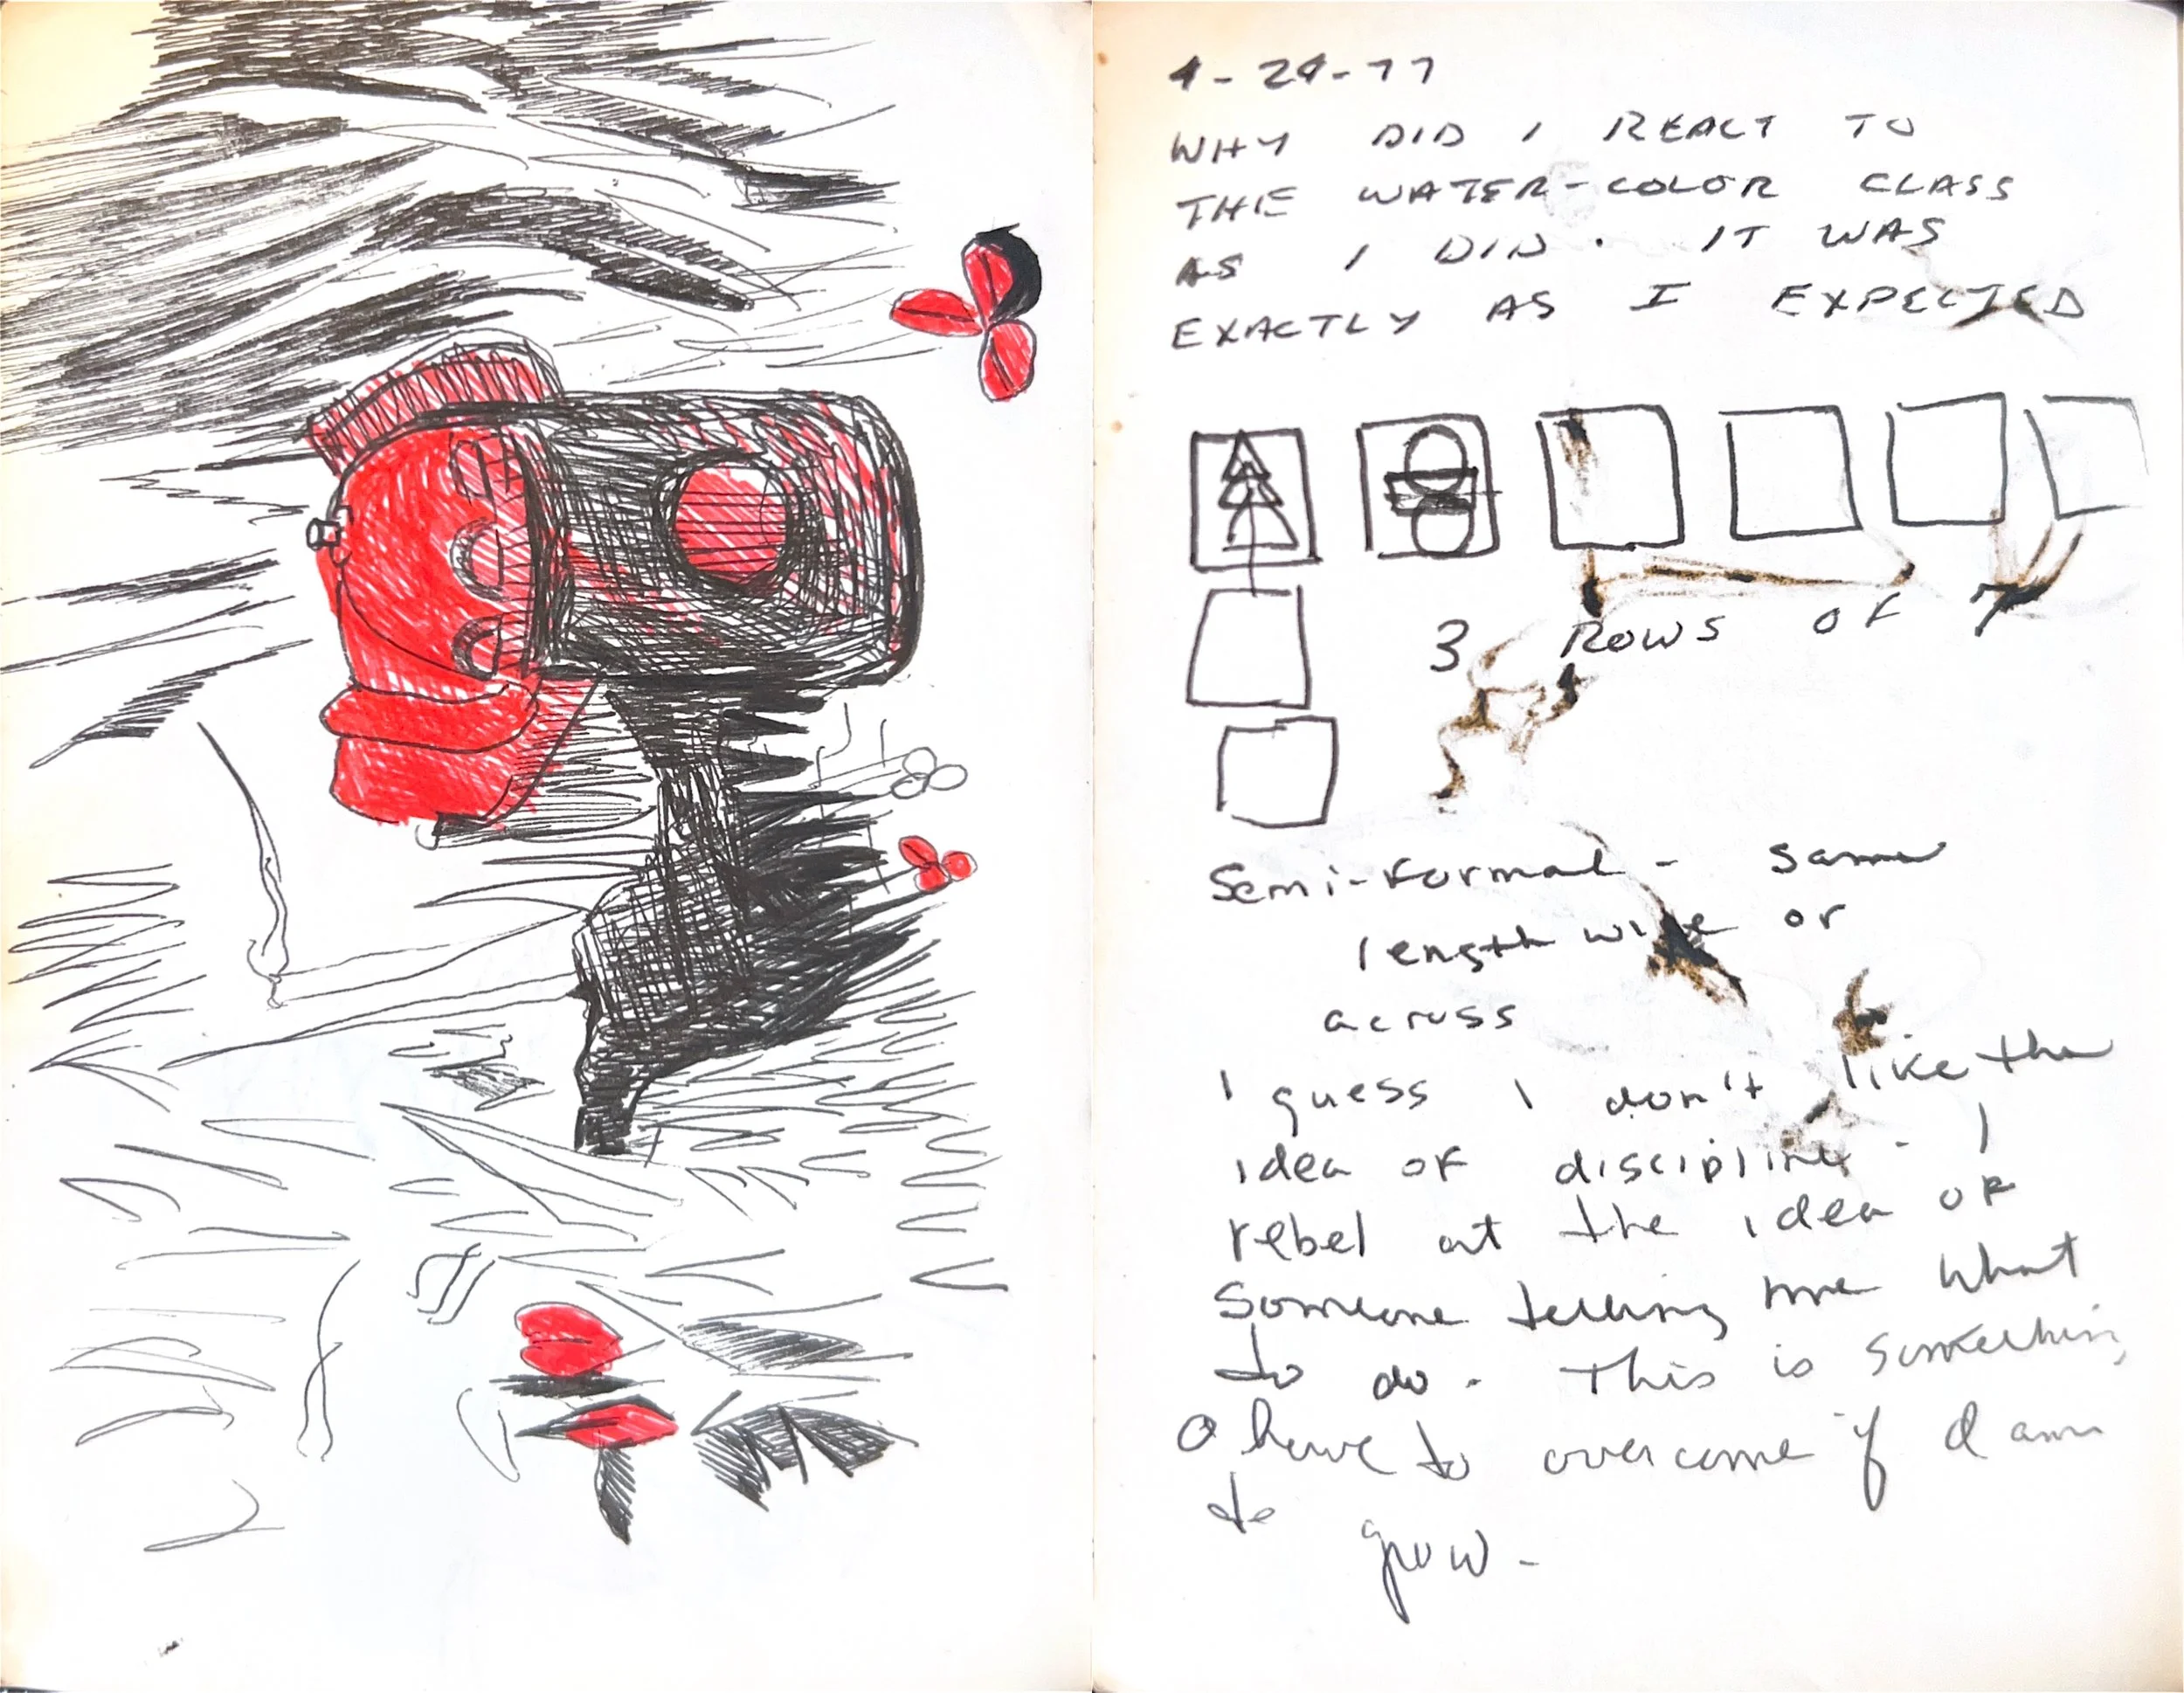 4-24-77
WHY DID I REACT TO
THE WATER-COLOR CLASS
AS I DID. IT WAS
EXACTLY AS I EXPECTED
3 ROWS OF 7
Semi-Formal - same
length wise or
across
I guess I don't like the
idea of discipline - I
rebel at the idea of
someone telling me what
to do. This is something
I have to overcome if I am
to grow -